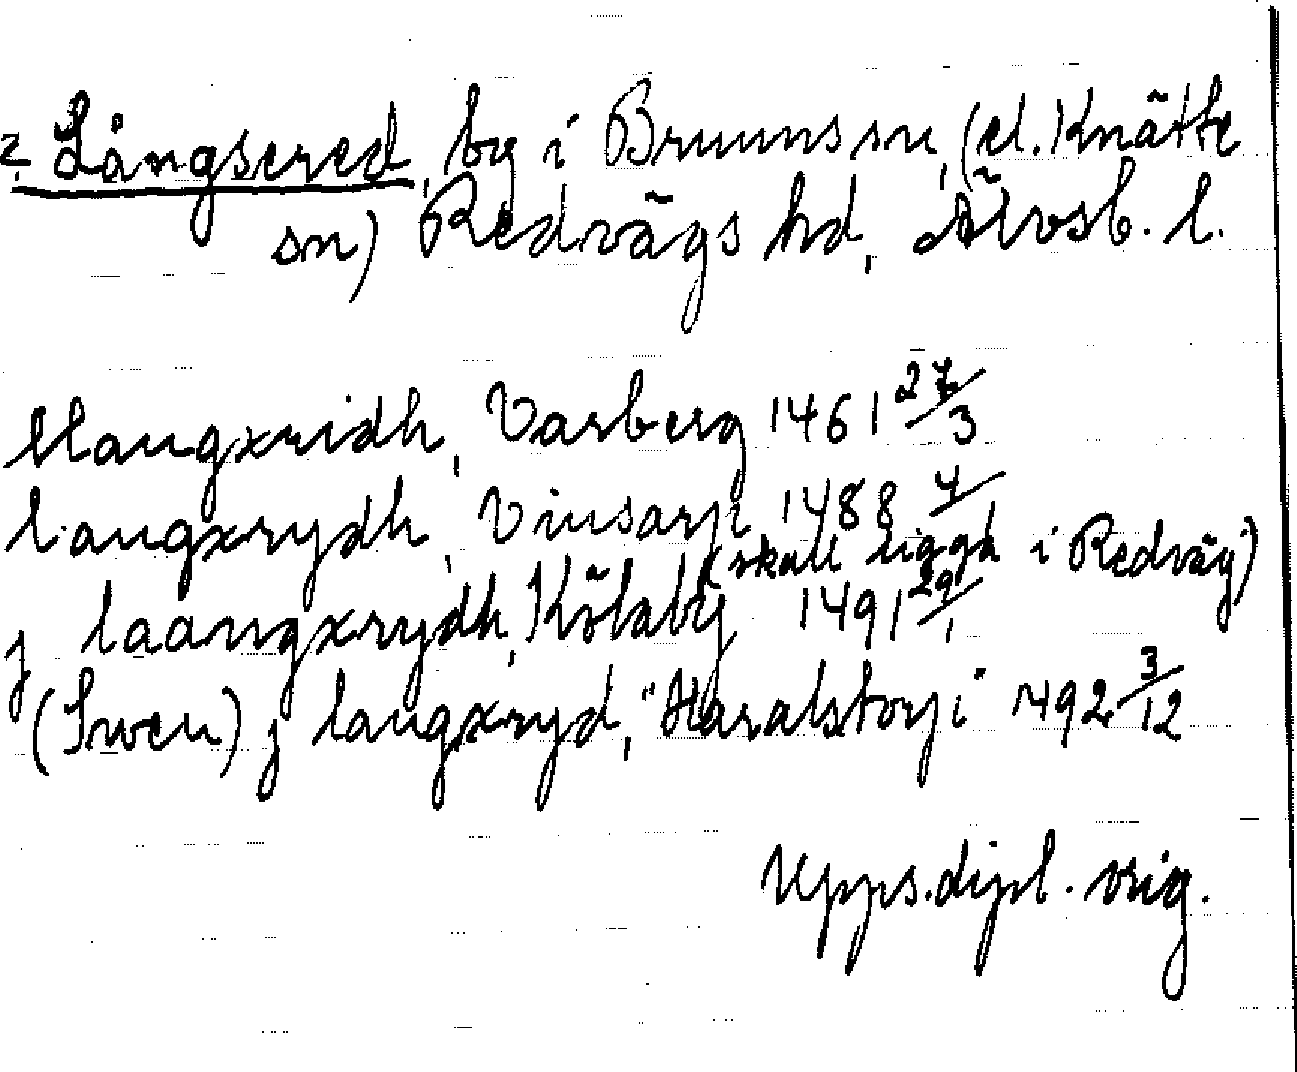 2. Långsered, by i Brunns sn, (el. Knätte
sn) Redvägs hd, Älvsb. l.
llangxridh, Varberg 1461 27/3
langxrydh, Vinsarp 1488 4/1
(skall ligga i Redväg)
j laangxrydh, Kölaby 1491 29/1
(Swen) j langxryd, "Haralstorp i 1492 3/12
Upps. dipl. orig.